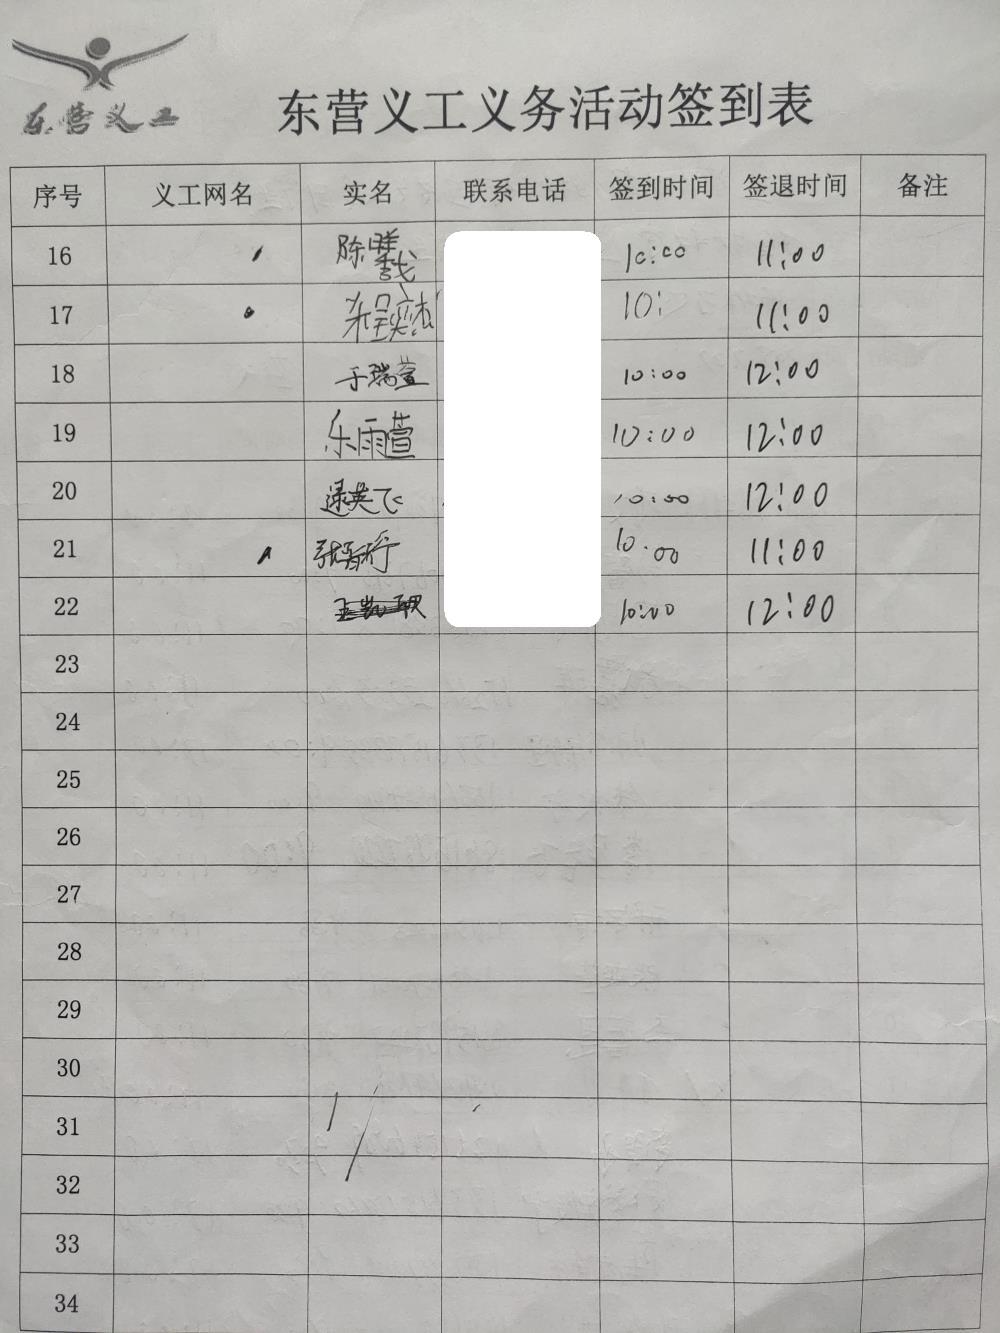 东营义工
东营义工义务活动签到表
序号 义工网名 实名 联系电话 签到时间 签退时间 备注
16 陈 10:00 11:00
17 10: 11:00
18 于瑞萱 10:00 12:00
19 乐雨萱 10:00 12:00
20 逯英飞 10:00 12:00
21 张 10:00 11:00
22 10:00 12:00
23
24
25
26
27
28
29
30
31
32
33
34